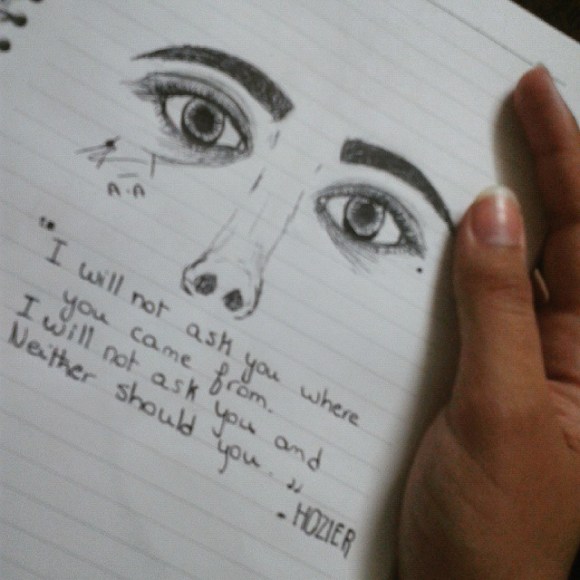 n.n
"I will not ask you where
you came from.
I will not ask you and
Neither should you."
- HOZIER